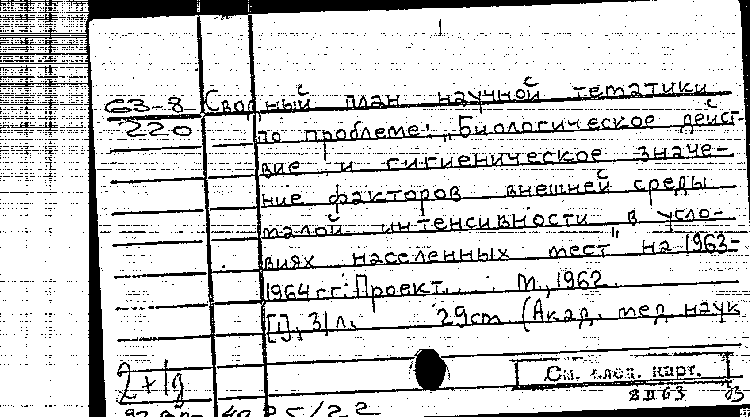 63-8 Сводный план научной тематики
220 по проблеме: „Биологическое дейст-
вие и гигиеническое значе-
ние факторов внешней среды
малой интенсивности в усло-
виях населенных мест" на 1963-
1964 гг. Проект. М., 1962.
[1], 31 л. 29см (Акад. мед. наук
2+1д
См. след. карт.